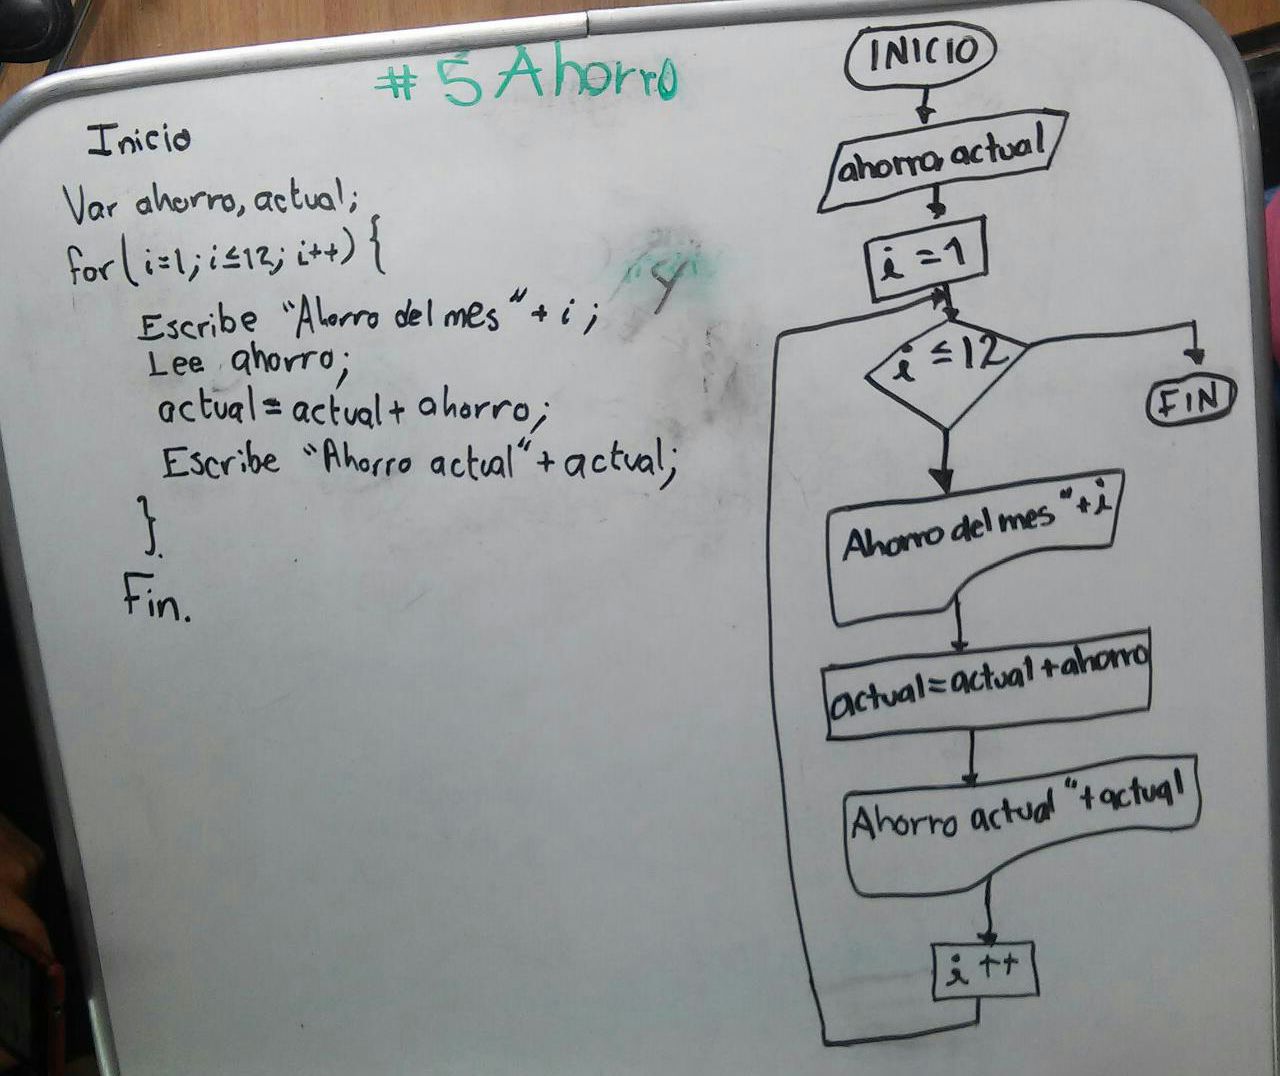 #5 Ahorro
Inicio
Var ahorro, actual;
for(i=1; i≤12; i++){
Escribe "Ahorro del mes" + i;
Lee ahorro;
actual = actual + ahorro;
Escribe "Ahorro actual" + actual;
}.
Fin.
INICIO
ahorro, actual
i = 1
i ≤ 12
FIN
Ahorro del mes" + i
actual = actual + ahorro
Ahorro actual "+ actual
i ++